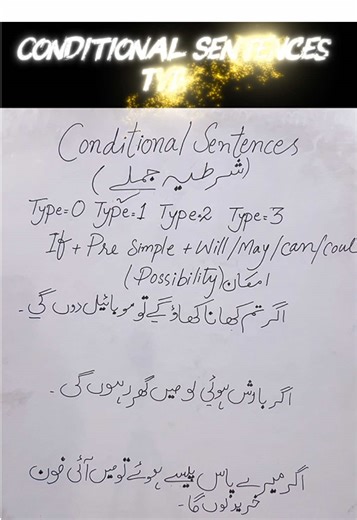 CONDITIONAL SENTENCES
Conditional Sentences
(شرطیہ جملے)
Type=0 Type=1 Type=2 Type=3
If + Pre Simple + Will/May/can/coul
(Possibility) امکان
اگر تم کھانا کھاؤ گے تو موبائیل دوں گی۔
اگر بارش ہوئی تو میں گھر رہوں گی۔
اگر میرے پاس پیسے ہوئے تو میں آئی فون
خریدوں گا۔